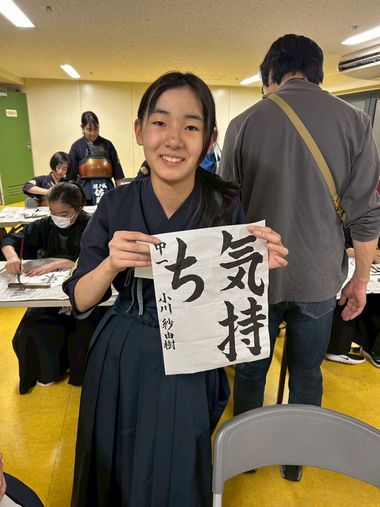 気持
ち
中一
小川紗由樹